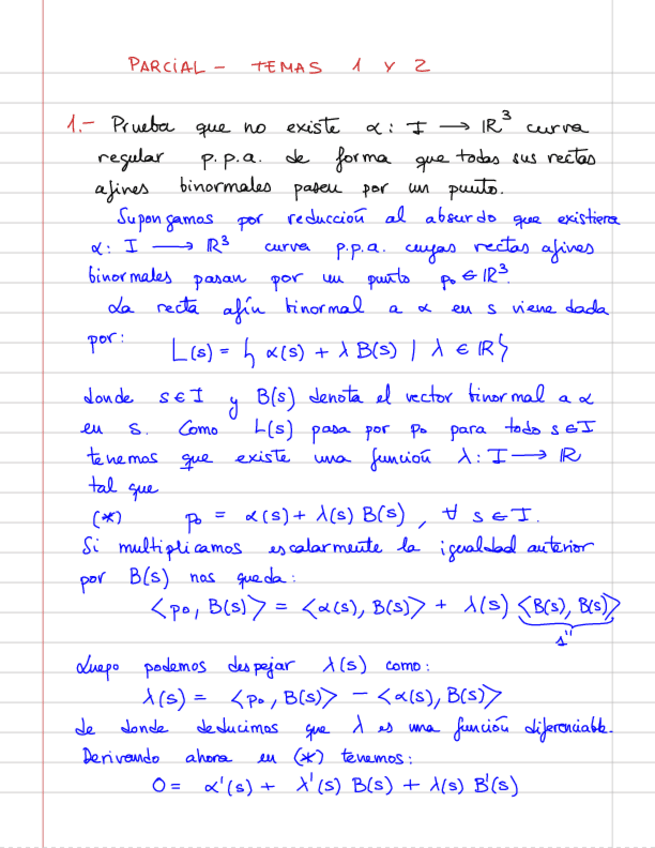 PARCIAL - TEMAS 1 Y 2
1.- Prueba que no existe α: I → ℝ³ curva
regular p.p.a. de forma que todas sus rectas
afines binormales pasen por un punto.
Supongamos por reducción al absurdo que existiera
α: I → ℝ³ curva p.p.a. cuyas rectas afines
binormales pasan por un punto p₀ ∈ ℝ³.
La recta afín binormal a α en s viene dada
por: L(s) = { α(s) + λ B(s) | λ ∈ ℝ }
donde s ∈ I y B(s) denota el vector binormal a α
en s. Como L(s) pasa por p₀ para todo s ∈ I
tenemos que existe una función λ: I → ℝ
tal que
(*) p₀ = α(s) + λ(s) B(s), ∀ s ∈ I.
Si multiplicamos escalarmente la igualdad anterior
por B(s) nos queda:
<p₀, B(s)> = <α(s), B(s)> + λ(s) <B(s), B(s)>
1"
Luego podemos despejar λ(s) como:
λ(s) = <p₀, B(s)> - <α(s), B(s)>
de donde deducimos que λ es una función diferenciable.
Derivando ahora en (*) tenemos:
0 = α'(s) + λ'(s) B(s) + λ(s) B'(s)